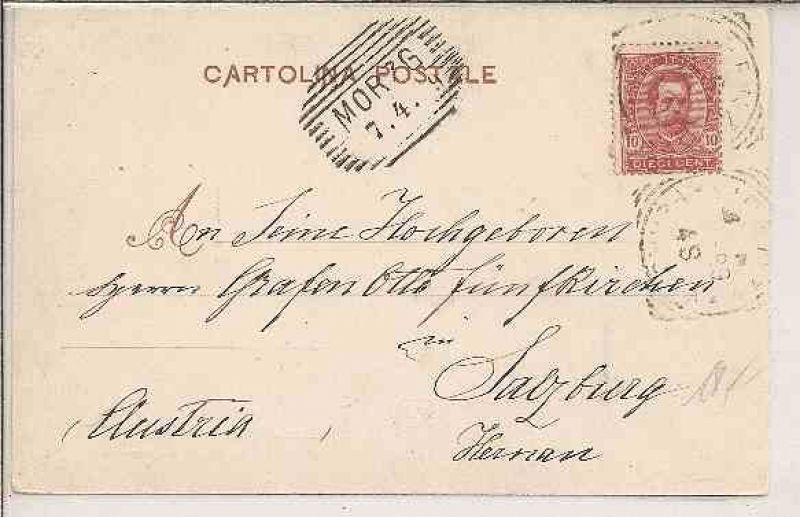 CARTOLINA POSTALE
MORZG
7.4.
10 10
DIECI CENT.
An Seine Hochgeboren
Herrn Grafen Otto Fünfkirchen
in
Salzburg
Austria
Hernau